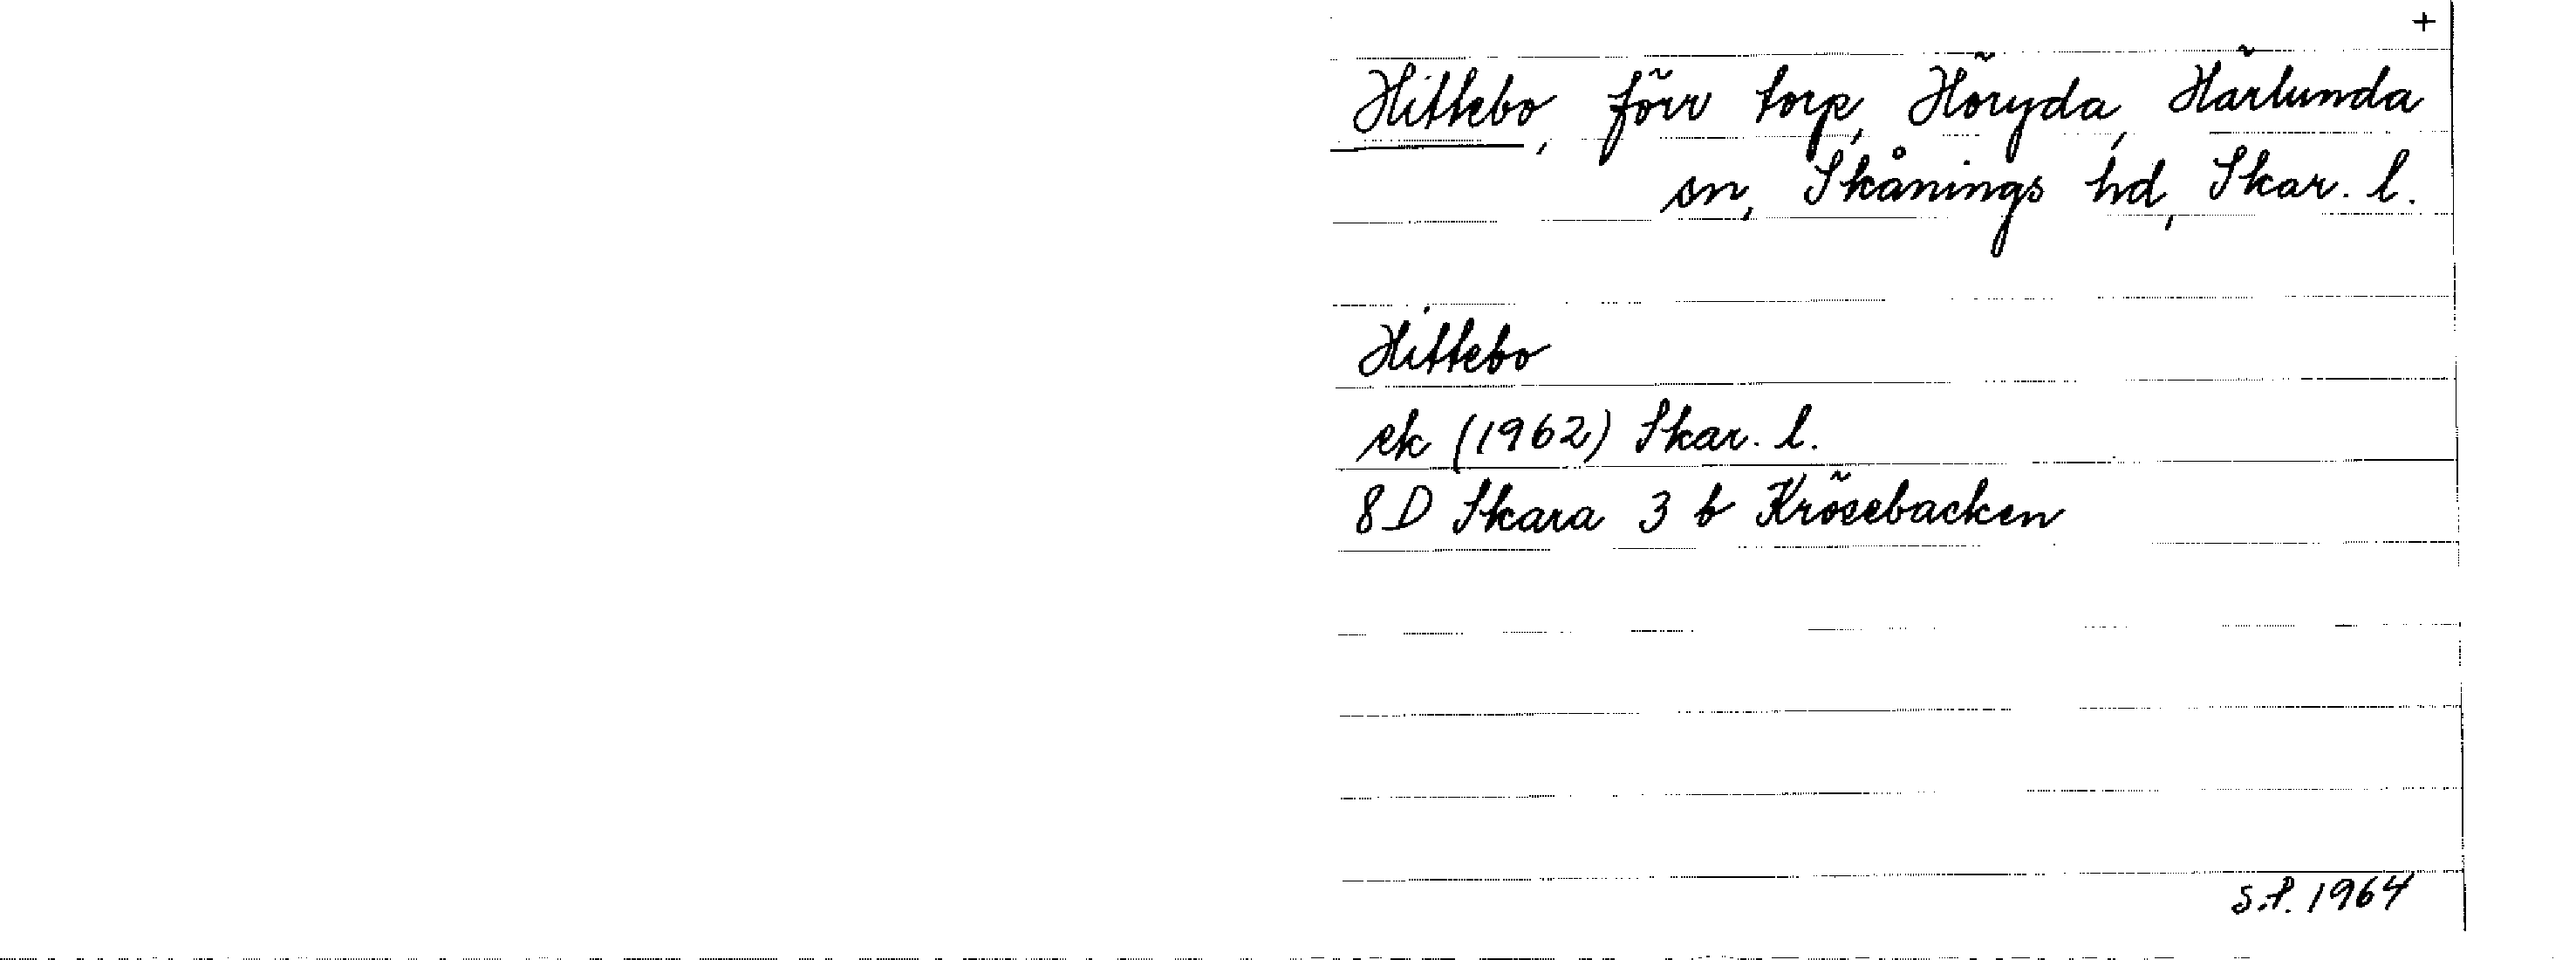 +
Hittebo, förr torp, Höryda, Härlunda
sn, Skånings hd, Skar. l.
Hittebo
ek (1962) Skar. l.
8D Skara 3 b Krösebacken
S.P. 1964